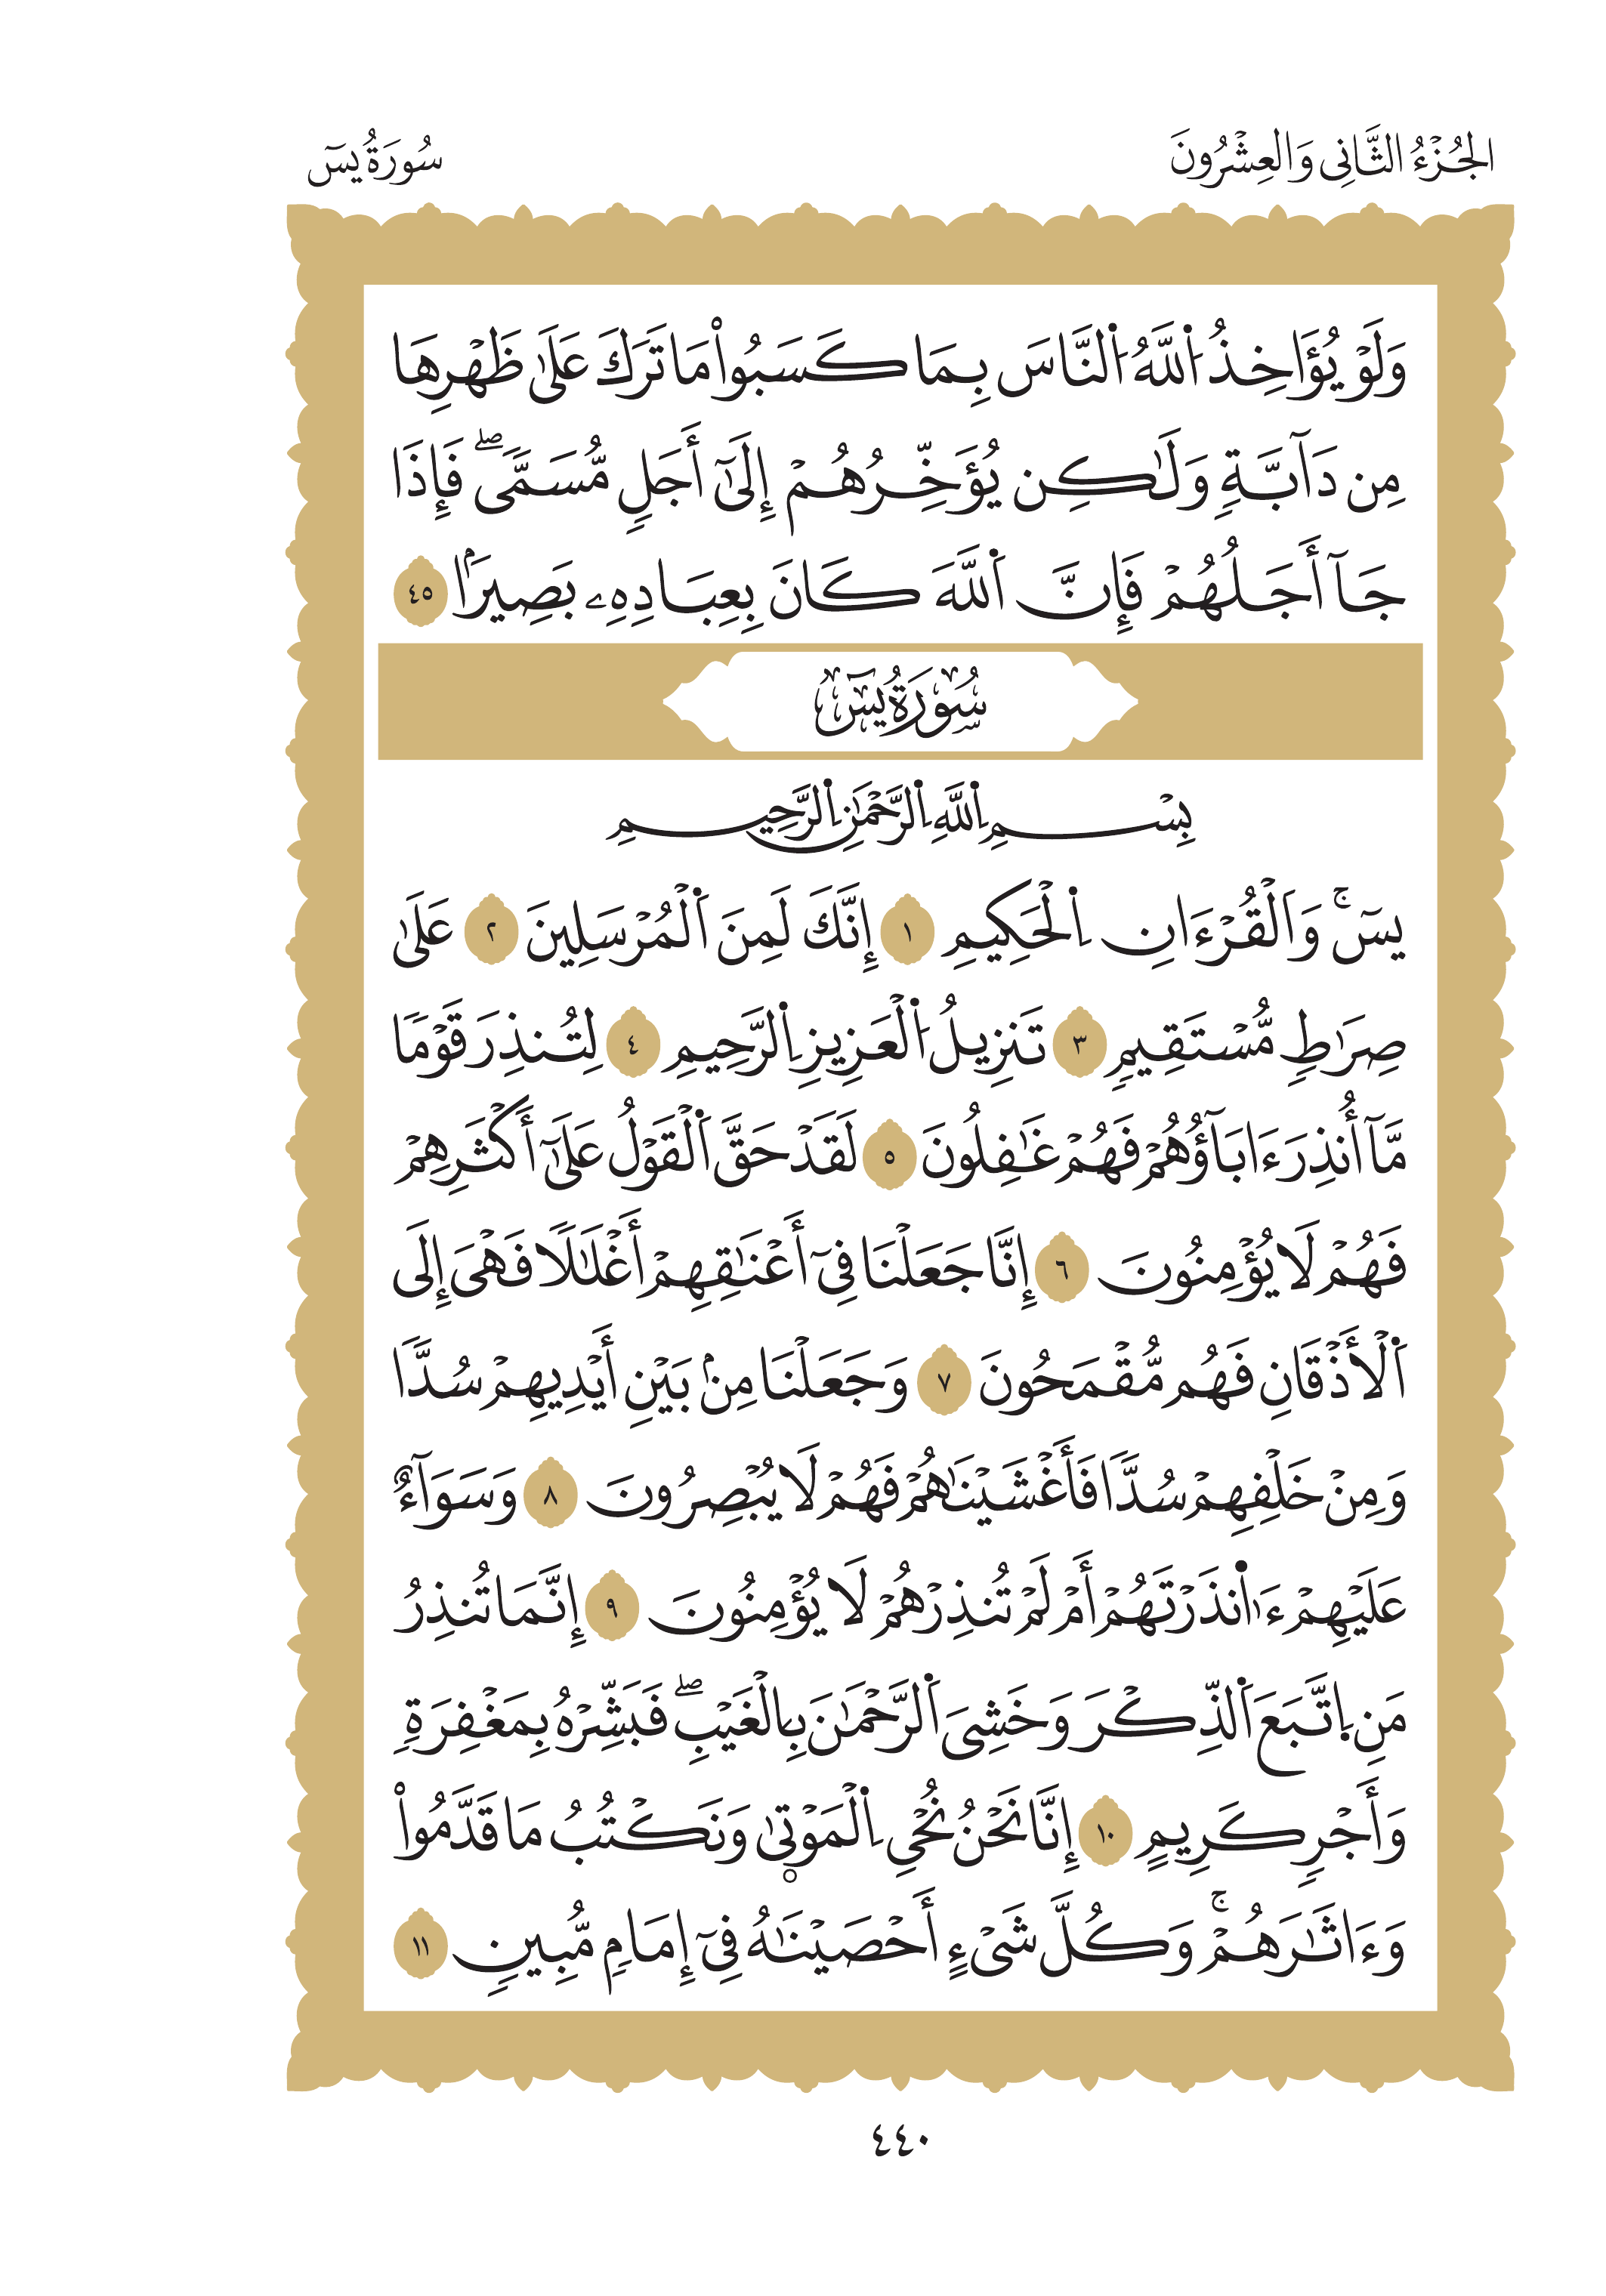 الجُزْءُ الثَّانِى وَالعِشْرُونَ
سُورَةُ يسٓ
وَلَوْ يُؤَاخِذُ اُ۬للَّهُ اُ۬لنَّاسَ بِمَا كَسَبُواْ مَا تَرَكَ عَلَىٰ ظَهْرِهَا
مِن دَآبَّةٖ وَلَٰكِن يُؤَخِّرُهُمْ إِلَىٰٓ أَجَلٖ مُّسَمّٗىۖ فَإِذَا
جَآ أَجَلُهُمْ فَإِنَّ اَ۬للَّهَ كَانَ بِعِبَادِهِۦ بَصِيرَۢا ٤٥
سُورَةُ يسٓ
بِسْمِ اِ۬للَّهِ اِ۬لرَّحْمَٰنِ اِ۬لرَّحِيمِ
يسٓۚ وَالْقُرْءَانِ اِ۬لْحَكِيمِ ١ إِنَّكَ لَمِنَ اَ۬لْمُرْسَلِينَ ٢ عَلَىٰ
صِرَٰطٖ مُّسْتَقِيمٖ ٣ تَنزِيلُ اُ۬لْعَزِيزِ اِ۬لرَّحِيمِ ٤ لِتُنذِرَ قَوْمٗا
مَّآ أُنذِرَ ءَابَآؤُهُمْ فَهُمْ غَٰفِلُونَ ٥ لَقَدْ حَقَّ اَ۬لْقَوْلُ عَلَىٰٓ أَكْثَرِهِمْ
فَهُمْ لَا يُؤْمِنُونَ ٦ إِنَّا جَعَلْنَا فِىٓ أَعْنَٰقِهِمْ أَغْلَٰلٗا فَهْىَ إِلَى
اَ۬لْأَذْقَانِ فَهُم مُّقْمَحُونَ ٧ وَجَعَلْنَا مِنۢ بَيْنِ أَيْدِيهِمْ سُدّٗا
وَمِنْ خَلْفِهِمْ سُدّٗا فَأَغْشَيْنَٰهُمْ فَهُمْ لَا يُبْصِرُونَ ٨ وَسَوَآءٌ
عَلَيْهِمْ ءَا۬نذَرْتَهُمْ أَمْ لَمْ تُنذِرْهُمْ لَا يُؤْمِنُونَ ٩ إِنَّمَا تُنذِرُ
مَنِ اِ۪تَّبَعَ اَ۬لذِّكْرَ وَخَشِىَ اَ۬لرَّحْمَٰنَ بِالْغَيْبِۖ فَبَشِّرْهُ بِمَغْفِرَةٖ
وَأَجْرٖ كَرِيمٍ ١٠ إِنَّا نَحْنُ نُحْىِ اِ۬لْمَوْتۭىٰ وَنَكْتُبُ مَا قَدَّمُواْ
وَءَاثَٰرَهُمْۚ وَكُلَّ شَىْءٍ أَحْصَيْنَٰهُ فِىٓ إِمَامٖ مُّبِينٖ ١١
٤٤٠